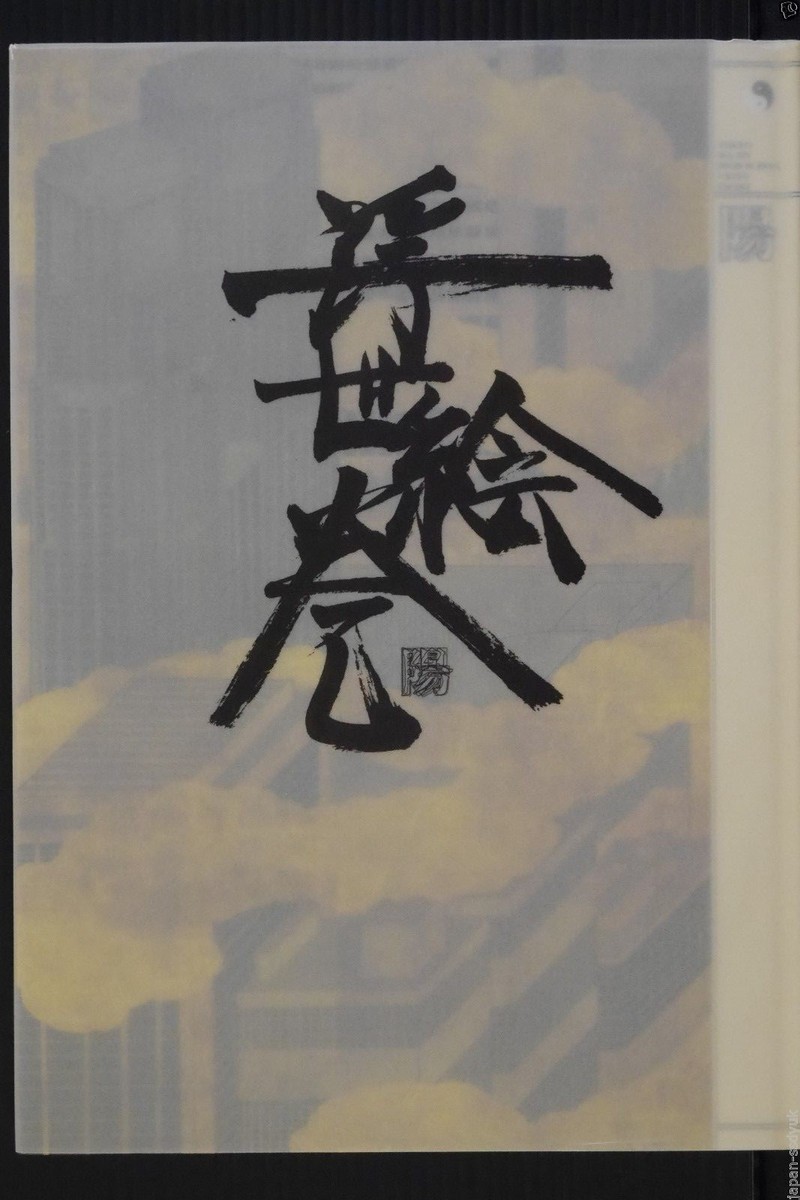 浮世絵巻
陽
陽
japan-sdyuk